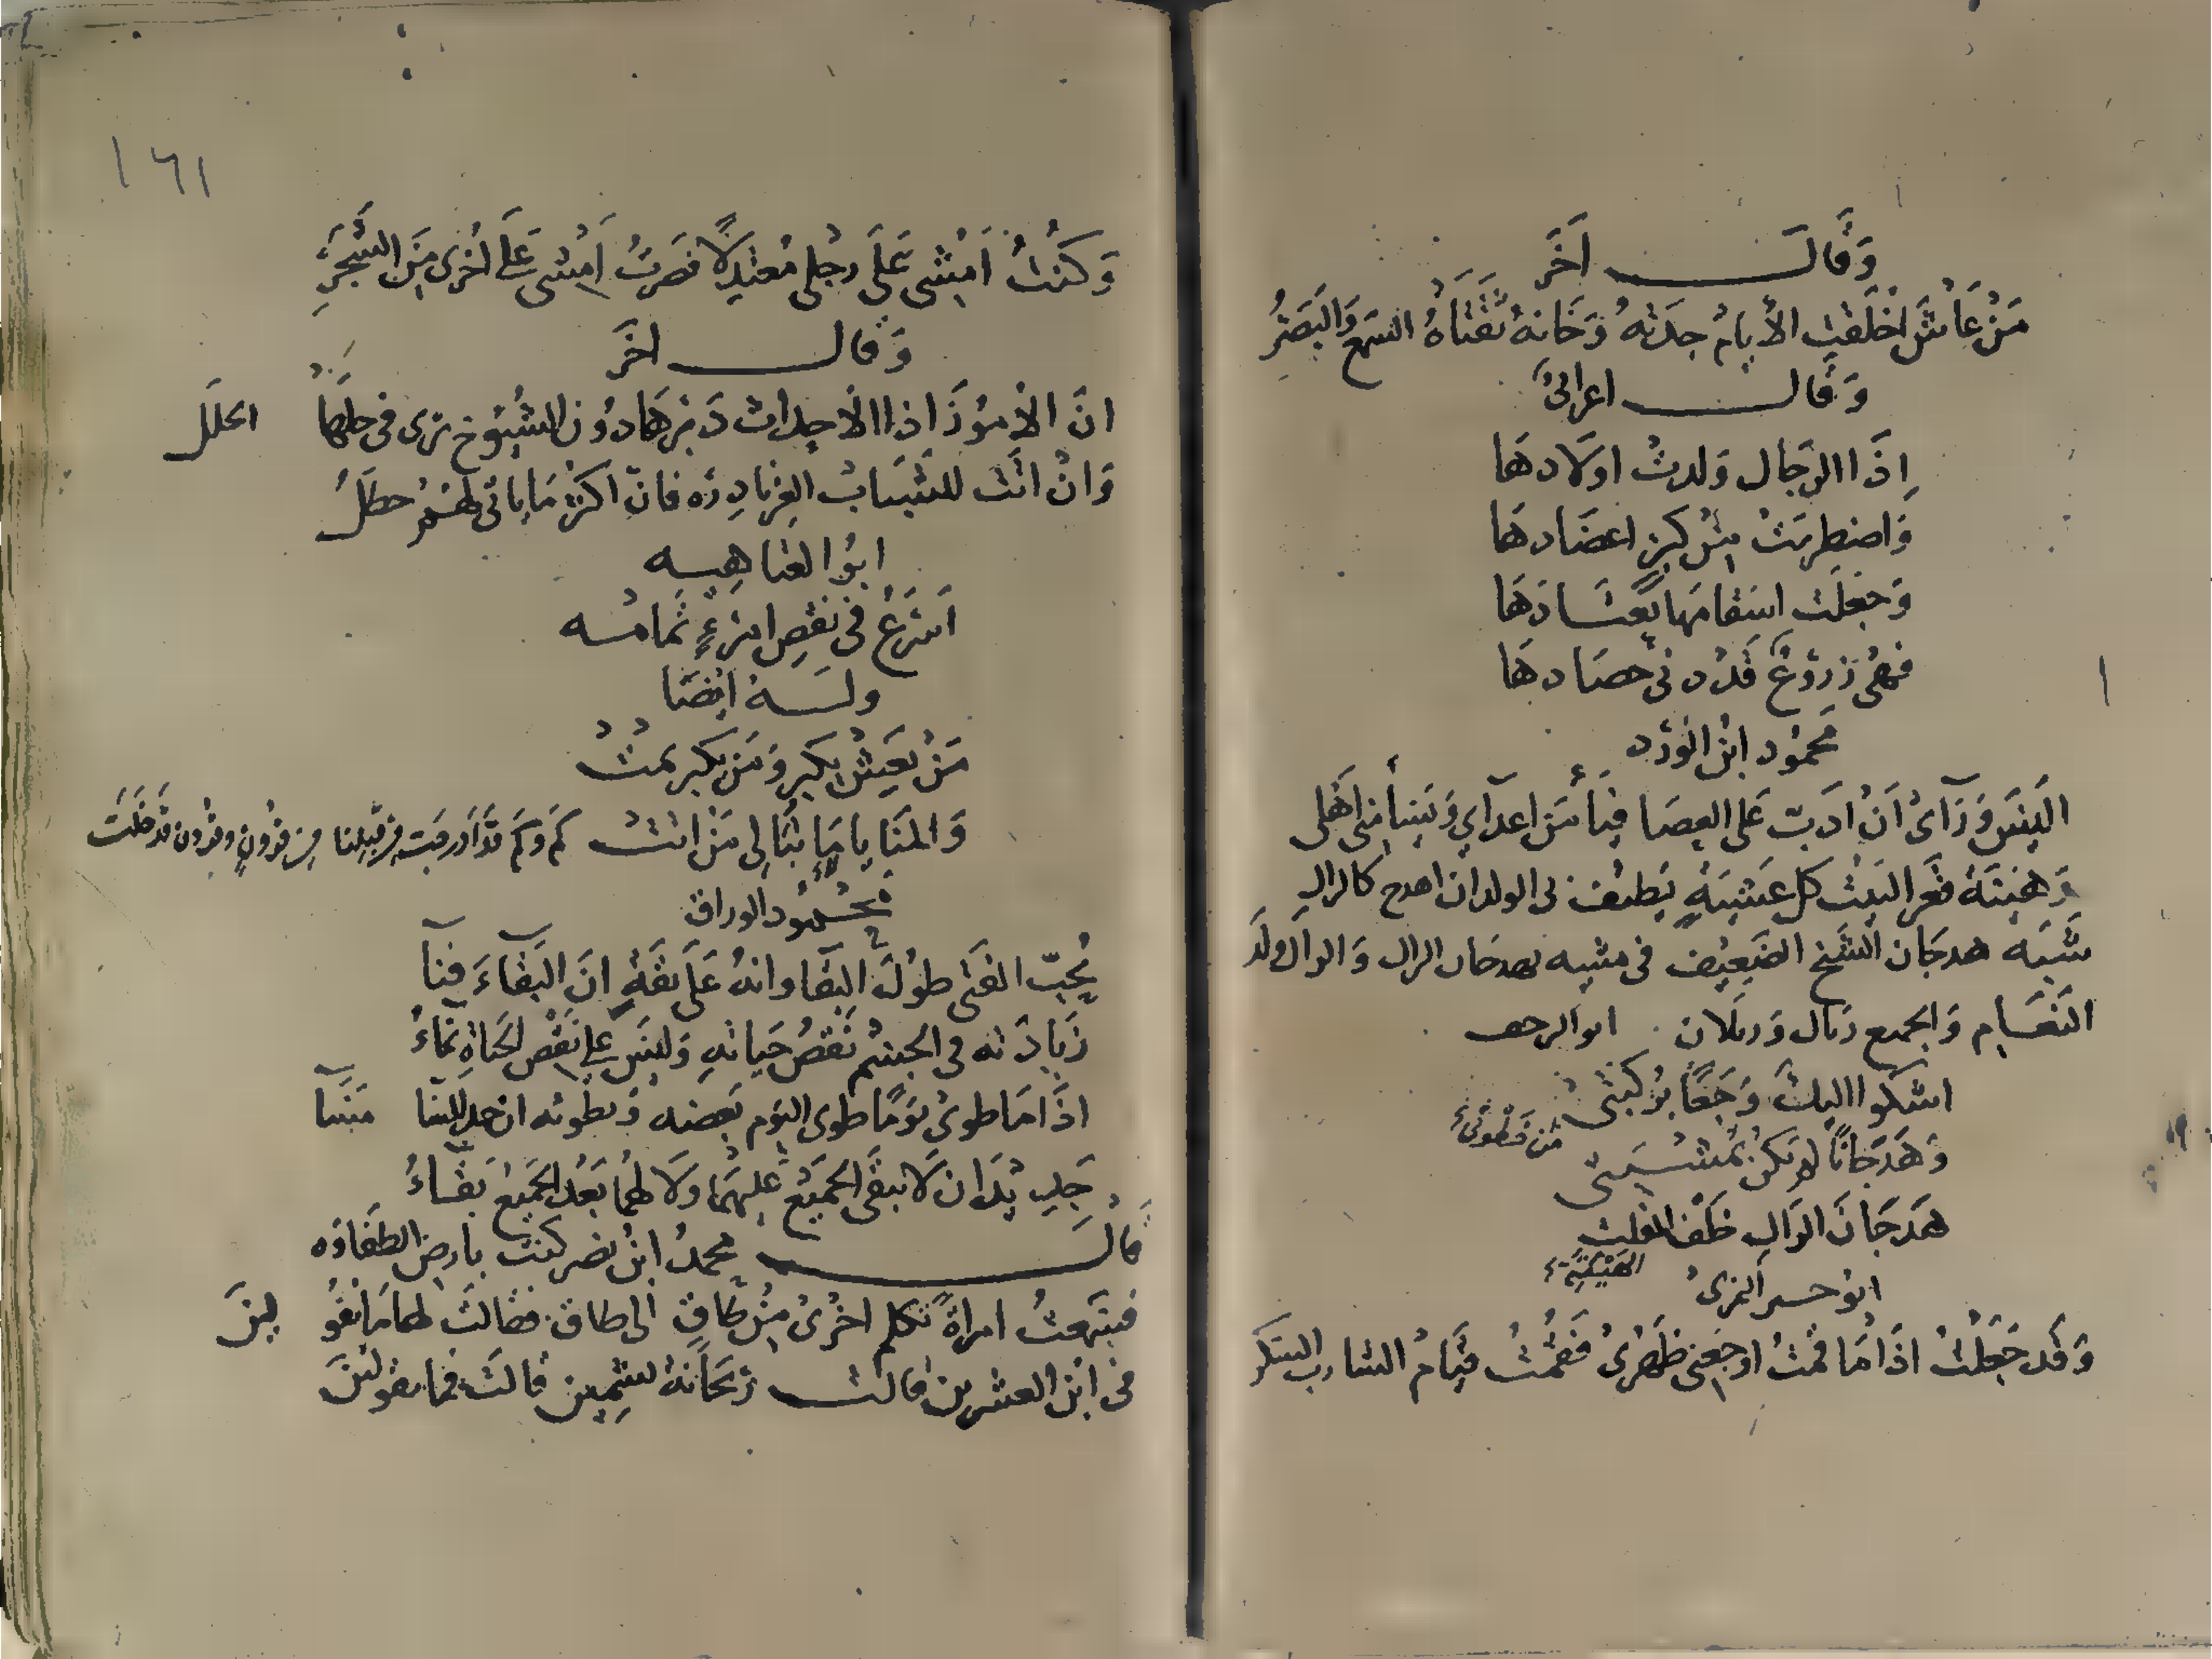 وَقَالَ آخَر
مَنْ عَاشَ اخْلَقَتِ الأيامُ جِدَتهُ وَخَانهُ ثقَتَاهُ السمع وَالبَصَرُ
وَقال اعرابىٌ
اِذَا الرّجَال وَلدتْ اولَادهَا
وَاضطربَتْ مِنْ كبرٍ اعضَادهَا
وَجعلَت اسقامهَا يَعْتَادهَا
فهْىَ زرُوعٌ قَدْ دنى حصَادهَا
محمُود ابن الورْد
اليْسَ وَرَآئ اَنْ ادَبّ عَلى العِصَا فيَأمَن اعدَآيي وَيَسْأمني اهْلى
رَهِينَة قعر البَيْت كل عَشِيَّةٍ يطيف بى الولدان اهدج كالرال
شَبّه هدجَان الشيْخ الضَعِيْف فى مشيه بهدجان الرال وَالرال ولَد
النَعَامِ وَالجمع رئال وَرئلَان ابو الزحف
اشكُوا اليكَ وَجَعًا بركبَتى
وَهَدَجَانًا لم يَكنْ بمشيَتى
هَدَجَانَ الرّالِ خلْفَ الهَيْقَتِ
ابو حية النمرىُ
وَقَد جَعَلْتُ اذَا مَا قمتُ اوجَعنِى ظَهرِىْ فَقمْتُ قيَامْ الشارب السّكر
١٦١
وَكنتُ اَمْشى عَلى رجْلى مُعتدِلًا فَصرتُ اَمشى عَلى اخْرى مِنَ الشَجَرِ
وَقال اخَر
انّ الامُورَ اذا الاحداث دَبّرهَا دُون الشيُوخِ ترى فى حلهَا الخلَل
وَانْ اتَت للشبَاب الغر نادرَه فانّ اكثر مَا ياتى لهُمْ خطَلُ
ابُو العتاهيه
اَسْرَعْ فى نقصِ امرءٍ تمامُه
ولَه ايْضَا
مَنْ يَعِشْ يكبر وَمَن يكبر يمتْ
وَالمنَايا مَا تُبَالِى مَنْ اتتْ كم وَكم قد ادرجَت من قبلنا من قرُونٍ وقرُون قدْ خلَت
محمُود الوراق
يُحِبّ الفتَى طوُلَ البقَا وانهُ عَلَى ثقَةٍ انّ البَقَاءَ فنآ
زيَادَته فى الجسْم نَقصُ حَيَاتهِ وَليْسَ على نَقْص الحيَاةِ نمَاءُ
اذَا مَا طوىْ يوْمًا طوى اليَوْم بَعضه وَيطويه ان جد المسَا مَسَآ
جَدِيدَان لَا يبقَى الجميْع عَلَيهمَا وَلَا لهمَا بَعْدَ الجَميْع بَقَاءُ
قَالَ محمدُ ابنُ نضر كنتُ بارض الطفَاوَه
فسَمعتُ امراَةً تكلم اخرْىْ مِنْ طاقٍ الى طاق فقالتْ لهَا مَا تقُولِيْنَ
فى ابْن العشرين قالت رَيحَانة تشمِين قالت فما تقوليْنَ